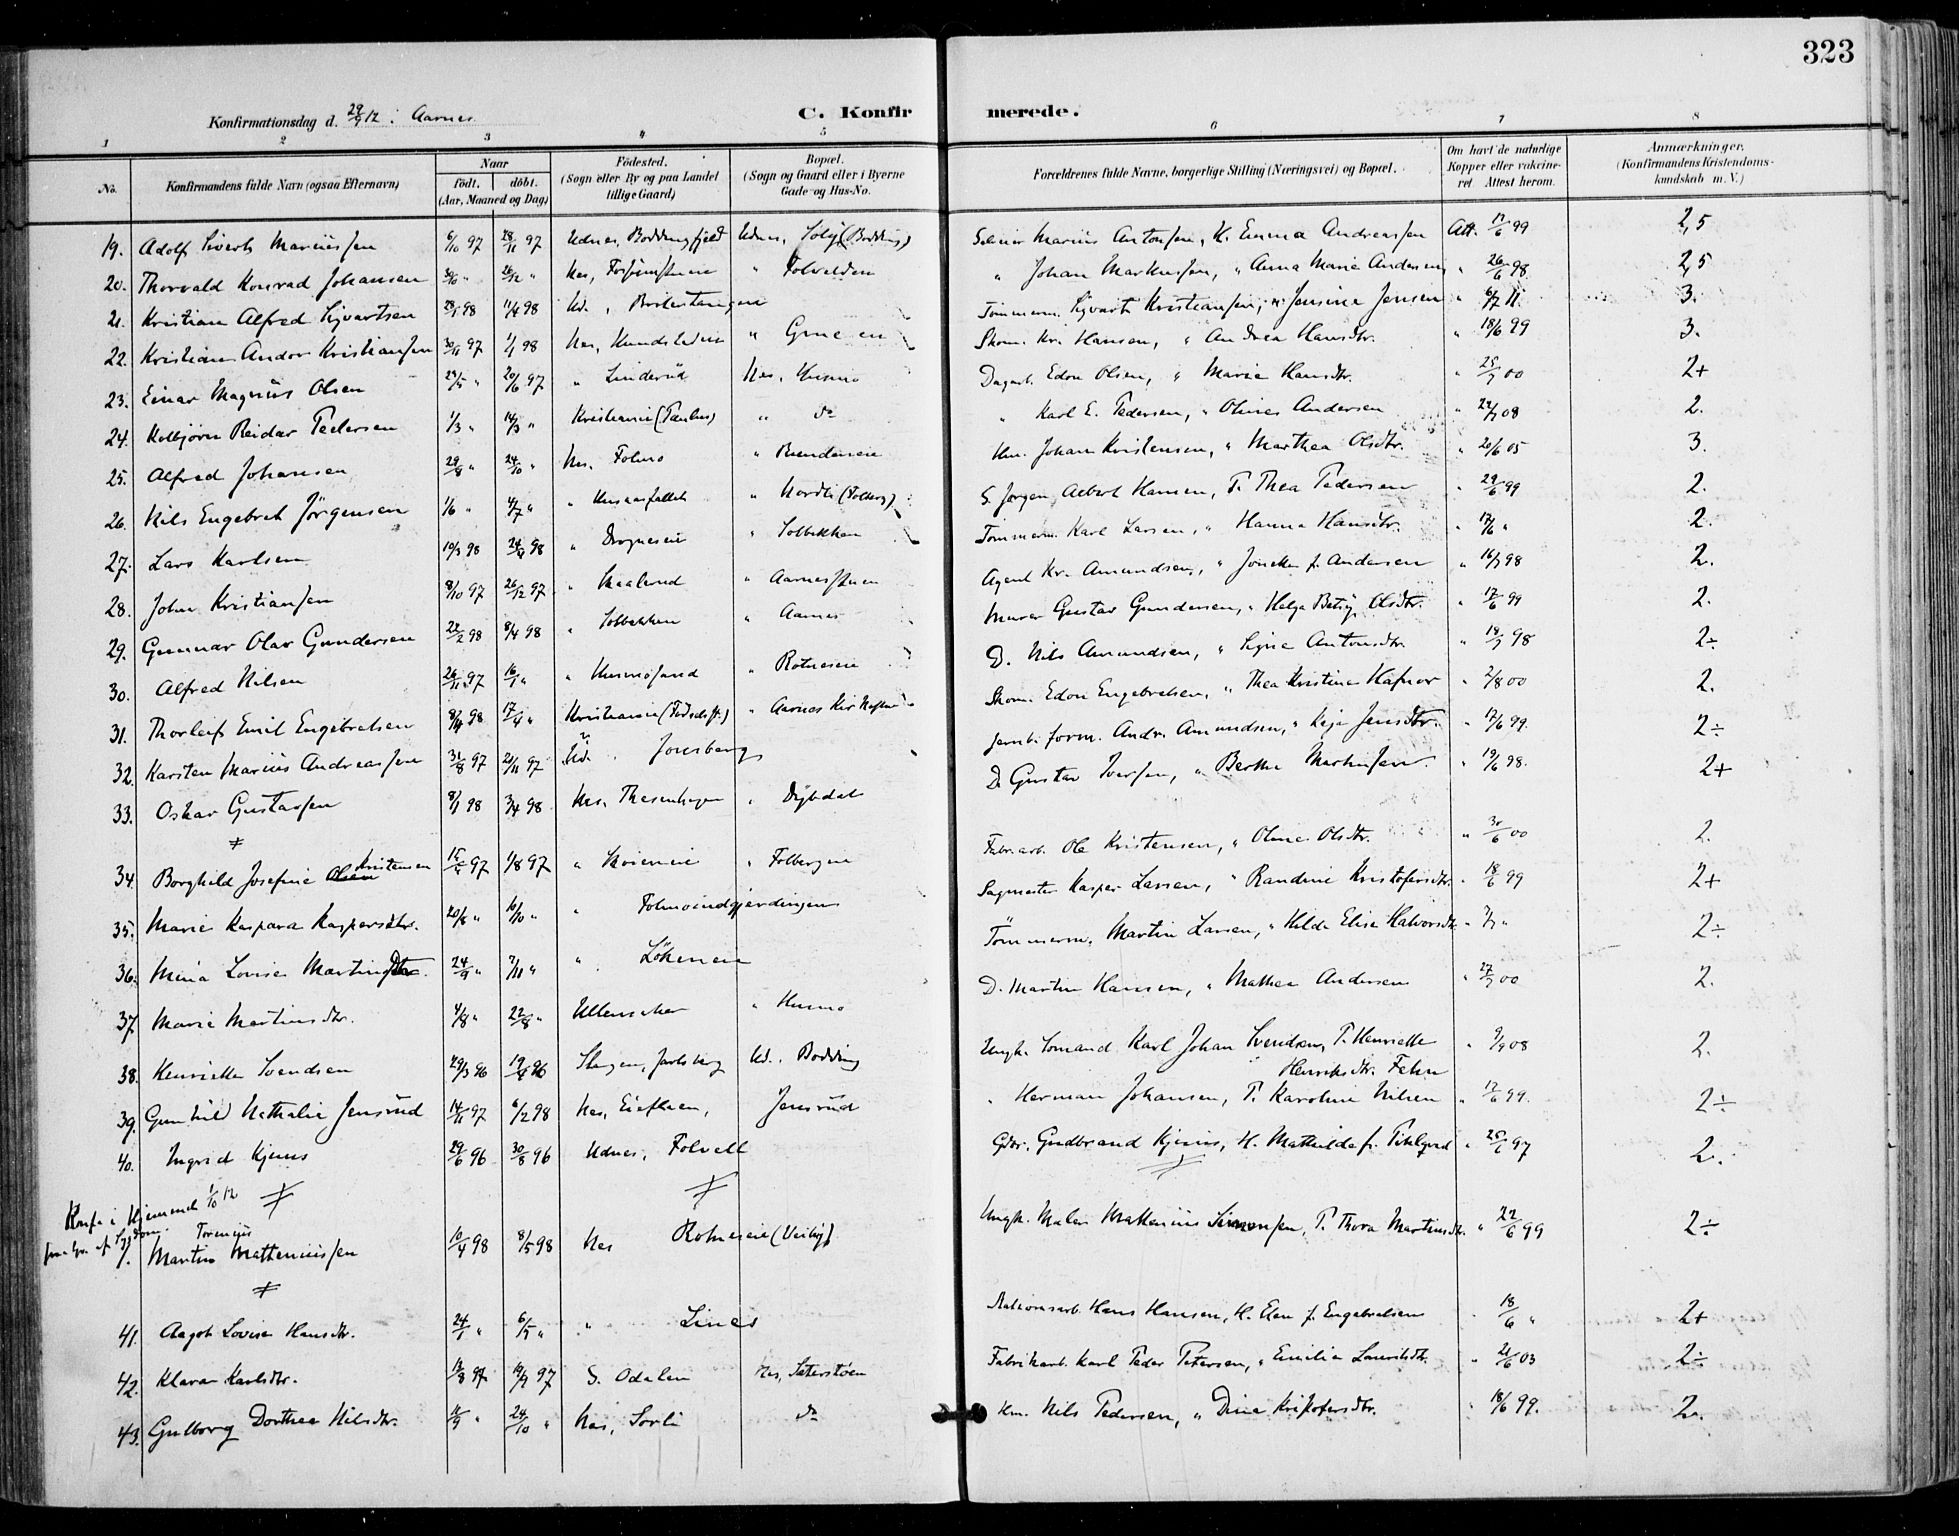 323
Konfirmationsdag d. 29/9 12 i Aarnes
C. Konfirmerede.
1 2 3 4 5 6 7 8
No. Konfirmandens fulde Navn (ogsaa Efternavn) Naar født. døbt. (Aar, Maaned og Dag) Fødested. (Sogn eller By og paa Landet tillige Gaard) Bopæl. (Sogn og Gaard eller i Byerne Gade og Hus-No. Forældrenes fulde Navne, borgerlige Stilling (Næringsvei) og Bopæl. Om havt de naturlige Kopper eller vakcineret. Attest herom. Anmærkninger. (Konfirmandens Kristendomskundskab m. V.)
19. Adolf Sivert Mariussen 6/10 97 28/11 97 Udnes, Boddingfjeld Udnes, Solbg (Bodding) Marius Antonsen, H. Emma Andreassen Att. 17/6 99 2,5
20. Thorvald Konrad Johansen 30/10 " 26/12 " Nes, " Folvelden " Johan Markussen, " Anna Marie Andersen " 26/6 98 2,5
21. Kristian Alfred Sigvartsen 28/1 98 11/4 98 Ud., Brolestangen Tømmerm. Sigvart Kristiansen, " Jensine Jensen " 6/7 11. 3.
22. Kristian Andor Kristiansen 30/11 97 1/1 98 Nes, Hundsleden " Skom. Kr. Hansen, " Andrea Hansdtr. " 18/6 99 3.
23. Einar Magnus Olsen 24/5 " 20/6 97 " Linderud Nes, Husmo Dagarb. Edon Olsen, " Marie Hansdtr. " 25/7 00 2+
24. Kolbjørn Reidar Pedersen 1/3 " 14/3 " Kristiania (Paulus) " do " Karl E. Pedersen, " Oline Andersen " 22/7 08 2.
25. Alfred Johansen 29/8 " 24/10 " Nes. Folmo " Hm. Johan Kristensen, " Marthea Olsdtr. " 20/6 05 3.
26. Nils Engebret Jørgensen 1/6 " 4/7 " " " Nordli (Folberg) S. Jørgen Albert Hansen, T. Thea Pedersen " 29/6 99 2.
27. Lars Karlsen 19/3 98 24/4 98 " Dragneseie " Solbakken Tømmerm. Karl Larsen, " Hanna Hansdtr. " 17/6 " 2.
28. Johan Kristiansen 8/10 97 26/12 97 " Skaalerud " Aarnesstuen Agent Kr. Amundsen, " f. Andersen " 16/7 98 2.
29. Gunnar Olav Gundersen 22/2 98 8/4 98 " Solbakken " Aarnes Murer Gustav Gundersen, " Helga Betsy Olsdtr. " 17/6 99 2.
30. Alfred Nilsen 26/11 97 16/1 " " Husmosand " Rotneseie D. Nils Amundsen, " Signe Antonsdtr. " 18/7 98 2÷
31. Thorleif Emil Engebretsen 8/1 98 17/4 " Kristiania (Fødselsst.) " Aarnes Skom. Edon Engebretsen, " Thea Kristine Hafnor " 2/8 00 2.
32. Karsten Marius Andreassen 31/8 97 21/11 97 Ud. Jonsberg Jernb. form. Andr. Amundsen, " Jensdtr. " 17/6 99. 2÷
33. Oskar Gustavsen 8/1 98 3/4 98 Nes. Thesenhagen " Dybdal D. Gustav Iversen, " Berthe Markussen " 19/6 98. 2+
≠
34. Borghild Josefine Olsen Kristensen 15/5 97 1/8 97 " Skoieneie " Folbergeie Fabr.arb. Ole Kristensen, " Oline Olsdtr. " 30/6 00 2.
35. Marie Kaspara Kaspersdtr. 20/8 " 10/10 " " Folmoindgjærdingen Sagmester Kasper Larsen, " Randine Kristofersdtr. " 18/6 99 2+
36. Mina Lovise Martinsdtr. 24/9 " 7/11 " " Løkeneie Tømmerm. Martin Larsen, " Hilda Elise Halvorsdtr. " 7/7 " 2÷
37. Marie Martinsdtr. 4/8 " 22/8 " Ullensaker " Husmo D. Martin Hansen, " Mathea Andersen " 27/7 00 2.
38. Henriette Svendsen 29/3 96 19/4 96 Slagen, Jarlsberg Ud. Bodding Ungk. Sømand Karl Johan Svendsen, T. Henriette Henriksdtr. Fehn " 9/9 08 2.
39. Gunhild Nathalie Jensrud 14/11 97 6/2 98 Nes, Jensrud " Herman Johansen, T. Karoline Nilsen " 17/6 99. 2÷
40. Ingrid Kjenus 29/6 96 30/8 96 Udnes, Folvell Gdbr. Gudbrand Kjenus, H. Mathilde f. " 25/6 97 2.
Konf. i Hjemmet 1/10 12 ≠ ≠ ≠
paa Gr. af Sygdom
1. Martin Torenius Matteniussen 10/4 98 8/5 98 Nes Rotneseie (Veiby) Ungk. Maler Mattenius Simensen, T. Thora Martinsdtr. " 22/6 99 2÷
≠
41. Aagot Lovise Hansdtr. 24/1 " 6/5 " " Lines Stationsarb. Hans Hansen, H. Elen f. Engebretsen " 18/6 " 2+
42. Klara Karlsdtr. 13/8 97 19/9 97 S. Odalen Nes, Seterstøen Fabrikarb. Karl Peder Petersen, " Emilie Lauritsdtr. " 21/6 03 2÷
43. Gulborg Dorthea Nilsdtr. 11/9 " 24/10 " Nes, Sorli do Hm. Nils Pedersen, " Dina Kristofersdtr. " 18/6 99. 2.